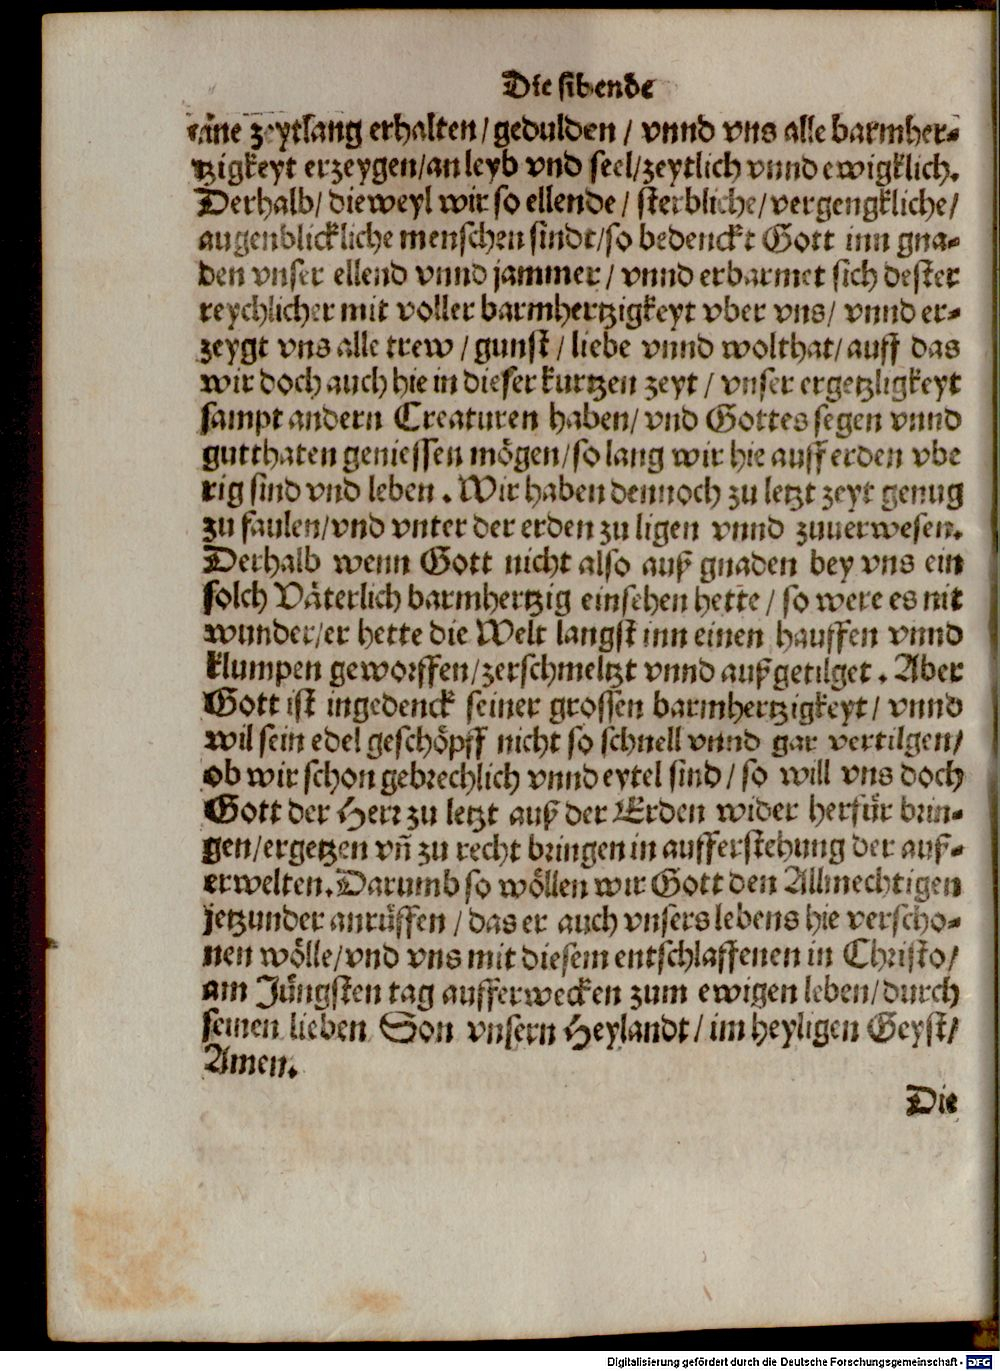 Die sibende
eine zeytlang erhalten/ gedulden / vnnd vns alle barmher⸗
tzigkeyt erzeygen/an leyb vnd seel/zeytlich vnnd ewigklich.
Derhalb/ dieweyl wir so ellende / sterbliche/ vergengkliche/
augenblickliche menschen sindt/so bedenckt Gott inn gna⸗
den vnser ellend vnnd jammer / vnnd erbarmet sich dester
reychlicher mit voller barmhertzigkeyt vber vns/ vnnd er⸗
zeygt vns alle trew / gunst / liebe vnnd wolthat/ auff das
wir doch auch hie in dieser kurtzen zeyt / vnser ergetzligkeyt
sampt andern Creaturen haben/ vnd Gottes segen vnnd
gutthaten geniessen mögen/so lang wir hie auff erden vbe
rig sind vnd leben . Wir haben dennoch zu letzt zeyt genug
zu faulen/vnd vnter der erden zu ligen vnnd zuuerwesen.
Derhalb wenn Gott nicht also auß gnaden bey vns ein
solch Väterlich barmhertzig einsehen hette / so were es nit
wunder/er hette die Welt langst inn einen hauffen vnnd
klumpen geworffen/zerschmeltzt vnnd außgetilget . Aber
Gott ist ingedenck seiner grossen barmhertzigkeyt/ vnnd
wil sein edel geschöpff nicht so schnell vnnd gar vertilgen/
ob wir schon gebrechlich vnnd eytel sind/ so will vns doch
Gott der Herr zu letzt auß der Erden wider herfür brin⸗
gen/ergetzen vñ zu recht bringen in aufferstehung der auß⸗
erwelten. Darumb so wöllen wir Gott den Allmechtigen
jetzunder anrüffen / das er auch vnsers lebens hie verscho⸗
nen wölle/vnd vns mit diesem entschlaffenen in Christo/
am Jüngsten tag aufferwecken zum ewigen leben/durch
seinen lieben Son vnsern Heylandt/ im heyligen Geyst/
Amen.
Die
Digitalisierung gefördert durch die Deutsche Forschungsgemeinschaft - DFG